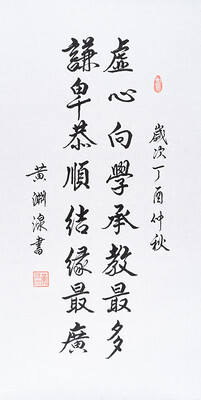 虛心向學承教最多
謙卑恭順結緣最廣
歲次丁酉仲秋
黃淵淥書